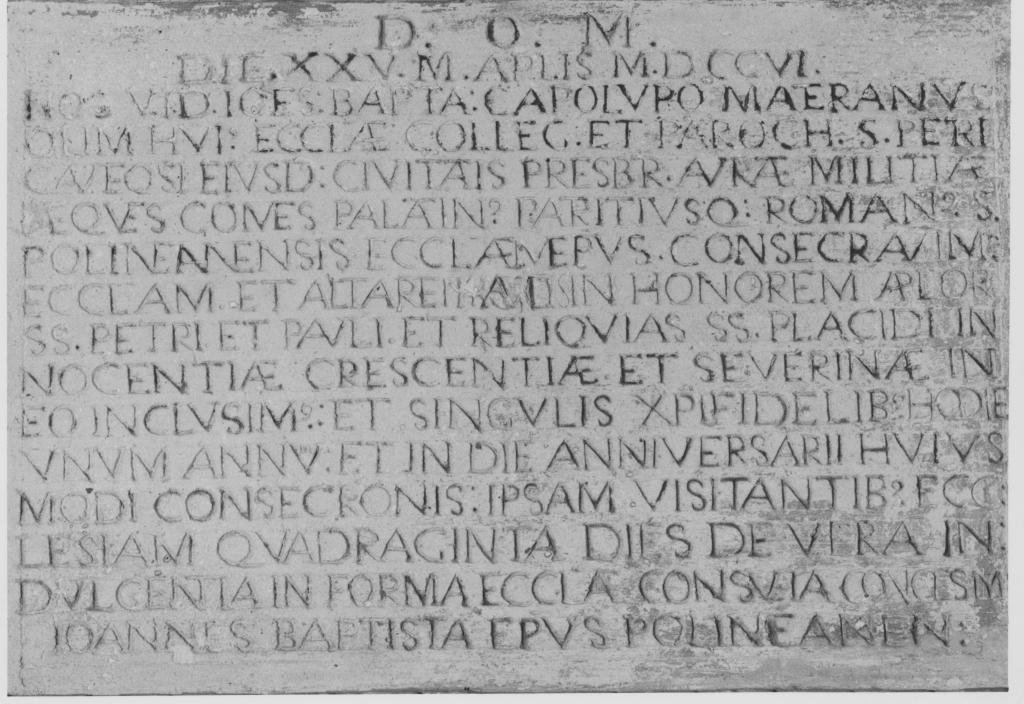 D. O. M.
DIE.XXV.M.APLIS M.DCCVI.
NOS V.I.D.IOES:BAPTA:CAPOLVPO MAERANV
ORUM HVI: ECCLÆ COLLEG:ET PAROCH.S.PETRI
CAVEOSI EIVSD:CIVITAIS PRESBR.AVRÆ MILITIÆ
ÆQVES COMES PALAIN? ROMAN? S.
POLINEANENSIS ECCLÆ EPVS.CONSECRAVIM?
ECCLAM.ET ALTARE IN HONOREM APLOR
SS.PETRI ET PAVLI.ET RELIQVIAS SS.PLACIDI IN
NOCENTIÆ CRESCENTIÆ.ET SEVERINÆ IN
EO INCLVSIM?:ET SINGVLIS XPI FIDELIB?HODIE
VNVM ANNV:ET IN DIE ANNIVERSARII HVIVS
MODI CONSECRONIS:IPSAM VISITANTIB?ECC:
LESIAM QVADRAGINTA DIES DE VERA IN:
DVLGENTIA IN FORMA ECCLÆ CONSVETA CONCESIM
IOANNES BAPTISTA EPVS POLINEANEN: